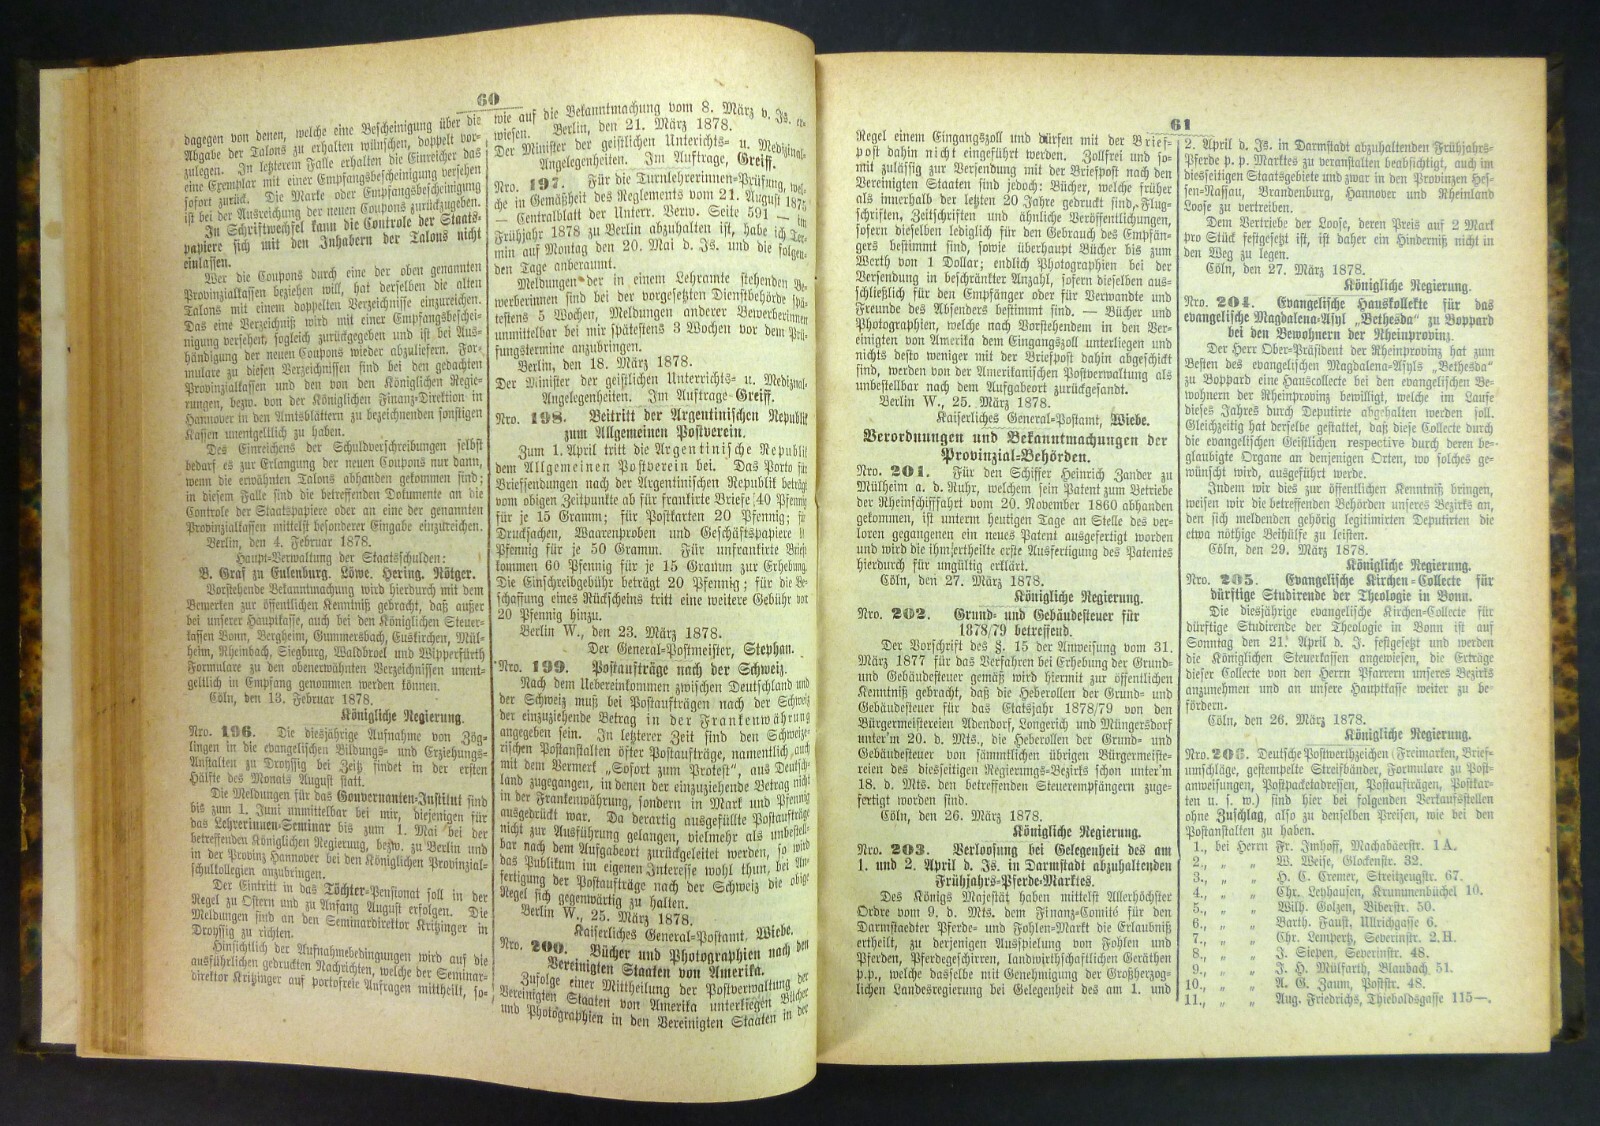 60
dagegen von denen, welche eine Bescheinigung über die
Abgabe der Talons zu erhalten wünschen, doppelt vor-
zulegen. In letzterem Falle erhalten die Einreicher das
eine Exemplar mit einer Empfangsbescheinigung versehen
sofort zurück. Die Marke oder Empfangsbescheinigung
ist bei der Ausreichung der neuen Coupons zurückzugeben.
In Schriftwechsel kann die Controle der Staats-
papiere sich mit den Inhabern der Talons nicht
einlassen.
Wer die Coupons durch eine der oben genannten
Provinzialkassen beziehen will, hat derselben die alten
Talons mit einem doppelten Verzeichnisse einzureichen.
Das eine Verzeichniß wird mit einer Empfangsbeschei-
nigung versehen, sogleich zurückgegeben und ist bei Aus-
händigung der neuen Coupons wieder abzuliefern. For-
mulare zu diesen Verzeichnissen sind bei den gedachten
Provinzialkassen und den von den Königlichen Regie-
rungen, bezw. von der Königlichen Finanz-Direktion in
Hannover in den Amtsblättern zu bezeichnenden sonstigen
Kassen unentgeltlich zu haben.
Des Einreichens der Schuldverschreibungen selbst
bedarf es zur Erlangung der neuen Coupons nur dann,
wenn die erwähnten Talons abhanden gekommen sind;
in diesem Falle sind die betreffenden Dokumente an die
Controle der Staatspapiere oder an eine der genannten
Provinzialkassen mittelst besonderer Eingabe einzureichen.
Berlin, den 4. Februar 1878.
Haupt-Verwaltung der Staatsschulden:
B. Graf zu Eulenburg. Löwe. Hering. Rötger.
Vorstehende Bekanntmachung wird hierdurch mit dem
Bemerken zur öffentlichen Kenntniß gebracht, daß außer
bei unserer Hauptkasse, auch bei den Königlichen Steuer-
kassen Bonn, Bergheim, Gummersbach, Euskirchen, Mül-
heim, Rheinbach, Siegburg, Waldbroel und Wipperfürth
Formulare zu den obenerwähnten Verzeichnissen unent-
geltlich in Empfang genommen werden können.
Cöln, den 13. Februar 1878.
Königliche Regierung.
Nro. 196. Die diesjährige Aufnahme von Zög-
lingen in die evangelischen Bildungs- und Erziehungs-
Anstalten zu Droyssig bei Zeitz findet in der ersten
Hälfte des Monats August statt.
Die Meldungen für das Gouvernanten-Institut sind
bis zum 1. Juni unmittelbar bei mir, diejenigen für
das Lehrerinnen-Seminar bis zum 1. Mai bei der
betreffenden Königlichen Regierung, bezw. zu Berlin und
in der Provinz Hannover bei den Königlichen Provinzial-
schulkollegien anzubringen.
Der Eintritt in das Töchter-Pensionat soll in der
Regel zu Ostern und zu Anfang August erfolgen. Die
Meldungen sind an den Seminardirektor Kritzinger in
Droyssig zu richten.
Hinsichtlich der Aufnahmebedingungen wird auf die
ausführlichen gedruckten Nachrichten, welche der Seminar-
direktor Kritzinger auf portofreie Anfragen mittheilt, so-
wie auf die Bekanntmachung vom 8. März v. Js. er-
wiesen. Berlin, den 21. März 1878.
Der Minister der geistlichen Unterichts- u. Medizinal-
Angelegenheiten. Im Auftrage, Greiff.
Nro. 197. Für die Turnlehrerinnen-Prüfung, wel-
che in Gemäßheit des Reglements vom 21. August 1875
— Centralblatt der Unterr. Verw. Seite 591 — im
Frühjahr 1878 zu Berlin abzuhalten ist, habe ich Ter-
min auf Montag den 20. Mai d. Js. und die folgen-
den Tage anberaumt.
Meldungen der in einem Lehramte stehenden Be-
werberinnen sind bei der vorgesetzten Dienstbehörde spä-
testens 5 Wochen, Meldungen anderer Bewerberinnen
unmittelbar bei mir spätestens 3 Wochen vor dem Prü-
fungstermine anzubringen.
Berlin, den 18. März 1878.
Der Minister der geistlichen Unterrichts- u. Medizinal-
Angelegenheiten. Im Auftrage Greiff.
Nro. 198. Beitritt der Argentinischen Republik
zum Allgemeinen Postverein.
Zum 1. April tritt die Argentinische Republik
dem Allgemeinen Postverein bei. Das Porto für
Briefsendungen nach der Argentinischen Republik beträgt
vom obigen Zeitpunkte ab für frankirte Briefe 40 Pfennig
für je 15 Gramm; für Postkarten 20 Pfennig; für
Drucksachen, Waarenproben und Geschäftspapiere
Pfennig für je 50 Gramm. Für unfrankirte Briefe
kommen 60 Pfennig für je 15 Gramm zur Erhebung.
Die Einschreibgebühr beträgt 20 Pfennig; für die Be-
schaffung eines Rückscheins tritt eine weitere Gebühr von
20 Pfennig hinzu.
Berlin W., den 23. März 1878.
Der General-Postmeister, Stephan.
Nro. 199. Postaufträge nach der Schweiz.
Nach dem Uebereinkommen zwischen Deutschland und
der Schweiz muß bei Postaufträgen nach der Schweiz
der einzuziehende Betrag in der Frankenwährung
angegeben sein. In letzterer Zeit sind den Schweize-
rischen Postanstalten öfter Postaufträge, namentlich auch
mit dem Vermerk „Sofort zum Protest", aus Deutsch-
land zugegangen, in denen der einzuziehende Betrag nicht
in der Frankenwährung, sondern in Mark und Pfennig
ausgedrückt war. Da derartig ausgefüllte Postaufträge
nicht zur Ausführung gelangen, vielmehr als unbestell-
bar nach dem Aufgabeort zurückgeleitet werden, so wird
das Publikum im eigenen Interesse wohl thun, bei An-
fertigung der Postaufträge nach der Schweiz die obige
Regel sich gegenwärtig zu halten.
Berlin W., 25. März 1878.
Kaiserliches General-Postamt. Wiebe.
Nro. 200. Bücher und Photographien nach den
Vereinigten Staaten von Amerika.
Zufolge einer Mittheilung der Postverwaltung der
Vereinigten Staaten von Amerika unterliegen Bücher
und Photographien in den Vereinigten Staaten in der
61
Regel einem Eingangszoll und dürfen mit der Brief-
post dahin nicht eingeführt werden. Zollfrei und so-
mit zulässig zur Versendung mit der Briefpost nach den
Vereinigten Staaten sind jedoch: Bücher, welche früher
als innerhalb der letzten 20 Jahre gedruckt sind, Flug-
schriften, Zeitschriften und ähnliche Veröffentlichungen,
sofern dieselben lediglich für den Gebrauch des Empfän-
gers bestimmt sind, sowie überhaupt Bücher bis zum
Werth von 1 Dollar; endlich Photographien bei der
Versendung in beschränkter Anzahl, sofern dieselben aus-
schließlich für den Empfänger oder für Verwandte und
Freunde des Absenders bestimmt sind. — Bücher und
Photographien, welche nach Vorstehendem in den Ver-
einigten von Amerika dem Eingangszoll unterliegen und
nichts desto weniger mit der Briefpost dahin abgeschickt
sind, werden von der Amerikanischen Postverwaltung als
unbestellbar nach dem Aufgabeort zurückgesandt.
Berlin W., 25. März 1878.
Kaiserliches General-Postamt, Wiebe.
Verordnungen und Bekanntmachungen der
Provinzial-Behörden.
Nro. 201. Für den Schiffer Heinrich Zander zu
Mülheim a. d. Ruhr, welchem sein Patent zum Betriebe
der Rheinschifffahrt vom 20. November 1860 abhanden
gekommen, ist unterm heutigen Tage an Stelle des ver-
loren gegangenen ein neues Patent ausgefertigt worden
und wird die ihm ertheilte erste Ausfertigung des Patentes
hierdurch für ungültig erklärt.
Cöln, den 27. März 1878.
Königliche Regierung.
Nro. 202. Grund- und Gebäudesteuer für
1878/79 betreffend.
Der Vorschrift des §. 15 der Anweisung vom 31.
März 1877 für das Verfahren bei Erhebung der Grund-
und Gebäudesteuer gemäß wird hiermit zur öffentlichen
Kenntniß gebracht, daß die Heberollen der Grund- und
Gebäudesteuer für das Etatsjahr 1878/79 von den
Bürgermeistereien Adendorf, Longerich und Müngersdorf
unter'm 20. d. Mts., die Heberollen der Grund- und
Gebäudesteuer von sämmtlichen übrigen Bürgermeiste-
reien des diesseitigen Regierungs-Bezirks schon unter'm
18. d. Mts. den betreffenden Steuerempfängern zuge-
fertigt worden sind.
Cöln, den 26. März 1878.
Königliche Regierung.
Nro. 203. Verloosung bei Gelegenheit des am
1. und 2. April d. Js. in Darmstadt abzuhaltenden
Frühjahrs-Pferde-Marktes.
Des Königs Majestät haben mittelst Allerhöchster
Ordre vom 9. d. Mts. dem Finanz-Comité für den
Darmstaedter Pferde- und Fohlen-Markt die Erlaubniß
ertheilt, zu derjenigen Ausspielung von Fohlen und
Pferden, Pferdegeschirren, landwirthschaftlichen Geräthen
p.p., welche dasselbe mit Genehmigung der Großherzog-
lichen Landesregierung bei Gelegenheit des am 1. und
2. April d. Js. in Darmstadt abzuhaltenden Frühjahrs-
Pferde p. p. Marktes zu veranstalten beabsichtigt, auch im
diesseitigen Staatsgebiete und zwar in den Provinzen Hes-
sen-Nassau, Brandenburg, Hannover und Rheinland
Loose zu vertreiben.
Dem Vertriebe der Loose, deren Preis auf 2 Mark
pro Stück festgesetzt ist, ist daher ein Hinderniß nicht in
den Weg zu legen.
Cöln, den 27. März 1878.
Königliche Regierung.
Nro. 204. Evangelische Hauskollekte für das
evangelische Magdalena-Asyl „Bethesda" zu Boppard
bei den Bewohnern der Rheinprovinz.
Der Herr Ober-Präsident der Rheinprovinz hat zum
Besten des evangelischen Magdalena-Asyls „Bethesda"
zu Boppard eine Hauscollecte bei den evangelischen Be-
wohnern der Rheinprovinz bewilligt, welche im Laufe
dieses Jahres durch Deputirte abgehalten werden soll.
Gleichzeitig hat derselbe gestattet, daß diese Collecte durch
die evangelischen Geistlichen respective durch deren be-
glaubigte Organe an denjenigen Orten, wo solches ge-
wünscht wird, ausgeführt werde.
Indem wir dies zur öffentlichen Kenntniß bringen,
weisen wir die betreffenden Behörden unseres Bezirks an,
den sich meldenden gehörig legitimirten Deputirten die
etwa nöthige Beihülfe zu leisten.
Cöln, den 29. März 1878.
Königliche Regierung.
Nro. 205. Evangelische Kirchen-Collecte für
dürftige Studirende der Theologie in Bonn.
Die diesjährige evangelische Kirchen-Collecte für
dürftige Studirende der Theologie in Bonn ist auf
Sonntag den 21. April d. J. festgesetzt und werden
die Königlichen Steuerkassen angewiesen, die Erträge
dieser Collecte von den Herrn Pfarrern unseres Bezirks
anzunehmen und an unsere Hauptkasse weiter zu be-
fördern.
Cöln, den 26. März 1878.
Königliche Regierung.
Nro. 206. Deutsche Postwerthzeichen (Freimarken, Brief-
umschläge, gestempelte Streifbänder, Formulare zu Post-
anweisungen, Postpacketadressen, Postaufträgen, Postkar-
ten u. s. w.) sind hier bei folgenden Verkaufsstellen
ohne Zuschlag, also zu denselben Preisen, wie bei den
Postanstalten zu haben.
1., bei Herrn Fr. Imhoff, Machabäerstr. 1 A.
2., „ „ W. Weise, Glockenstr. 32.
3., „ „ H. C. Cremer, Streitzeugstr. 67.
4., „ „ Chr. Leyhausen, Krummenbüchel 10.
5., „ „ Wilh. Golzen, Biberstr. 50.
6., „ „ Barth. Faust, Ullrichgasse 6.
7., „ „ Chr. Lempertz, Severinstr. 2.H.
8., „ „ J. Siepen, Severinstr. 48.
9., „ „ J. H. Mülfarth, Blaubach 51.
10., „ „ A. G. Zaum, Poststr. 48.
11., „ „ Aug. Friedrichs, Thieboldsgasse 115—.